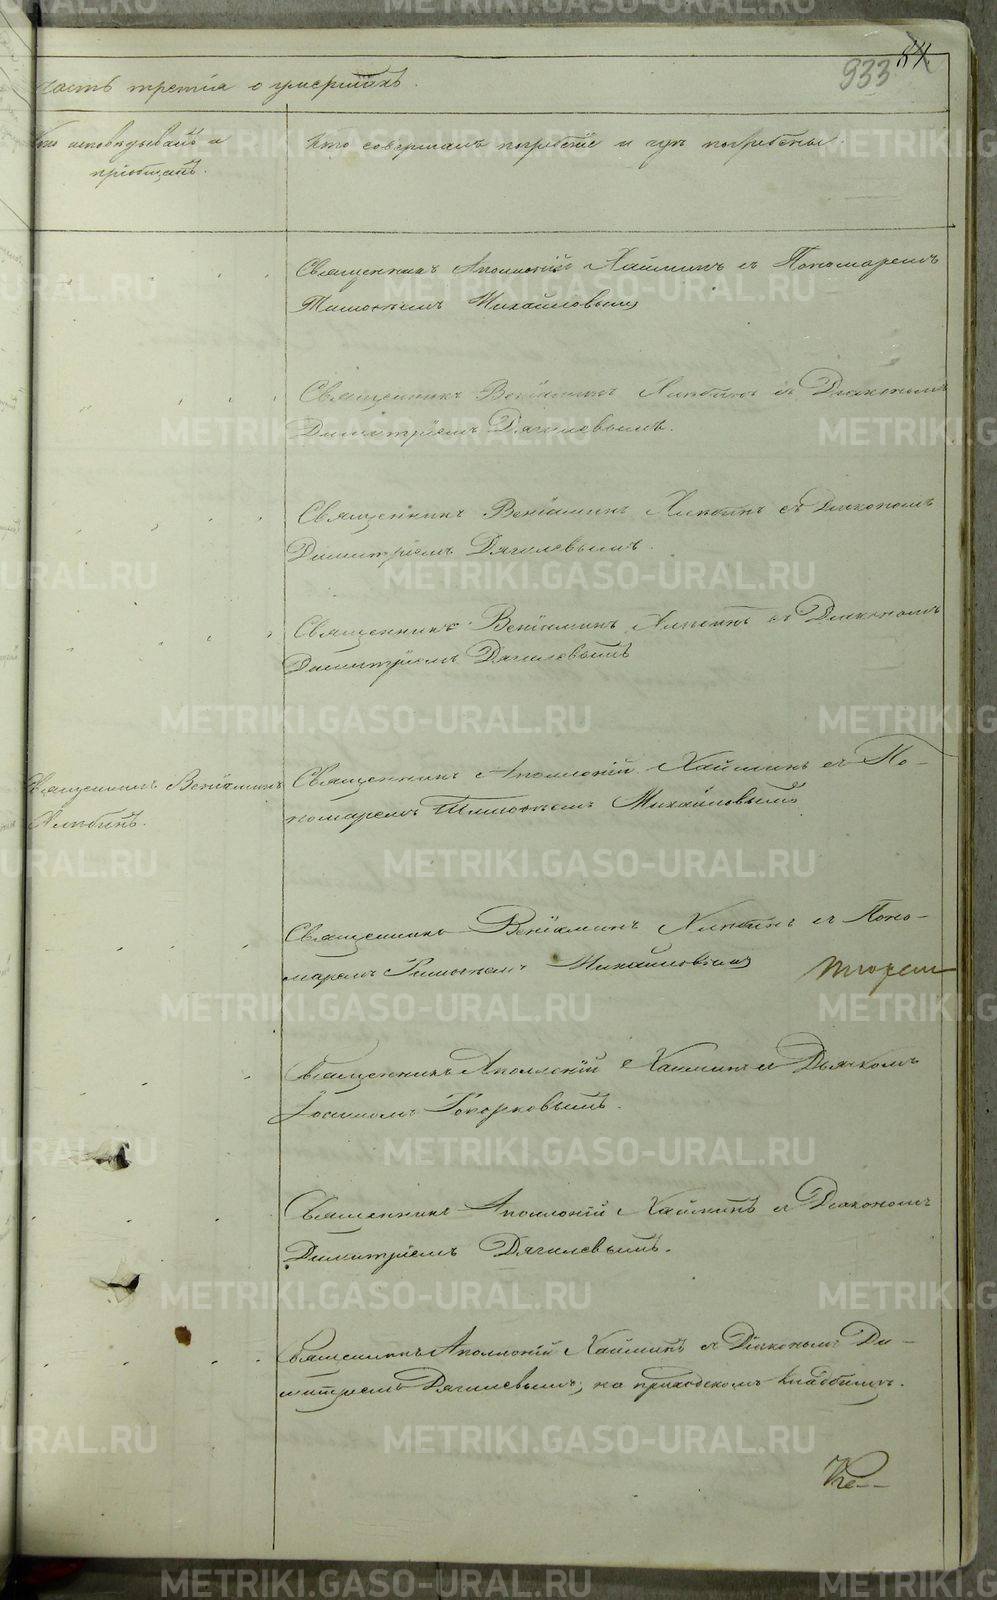 933 84
часть третія о умершихъ.
Кто исповѣдывалъ и
пріобщалъ.
Кто совершалъ погребеніе и гдѣ погребены.
Священникъ Аполлоній Хаймин съ Пономаремъ
Тимофѣемъ Михайловымъ
Священникъ Веніаминъ Хлыбинъ съ Діакономъ
Димитріемъ Дягилевымъ.
Священникъ Веніаминъ Хлыбинъ съ Діакономъ
Димитріемъ Дягилевымъ.
Священникъ Веніаминъ Хлыбинъ съ Діакономъ
Димитріемъ Дягилевымъ
Священникъ Веніаминъ
Хлыбинъ.
Священникъ Аполлоній Хайминъ съ По-
номаремъ Тимофѣемъ Михайловымъ
Священникъ Веніаминъ Хлыбинъ съ Поно-
маремъ Тимофѣемъ Михайловымъ
Священникъ Аполлоній Хайминъ съ Дьячкомъ
Іосифомъ Топорковымъ.
Священникъ Аполлоній Хайминъ съ Діакономъ
Димитріемъ Дягилевымъ.
Священникъ Аполлоній Хайминъ съ Діакономъ Ди-
митріемъ Дягилевымъ; на приходскомъ кладбищѣ.
METRIKI.GASO-URAL.RU